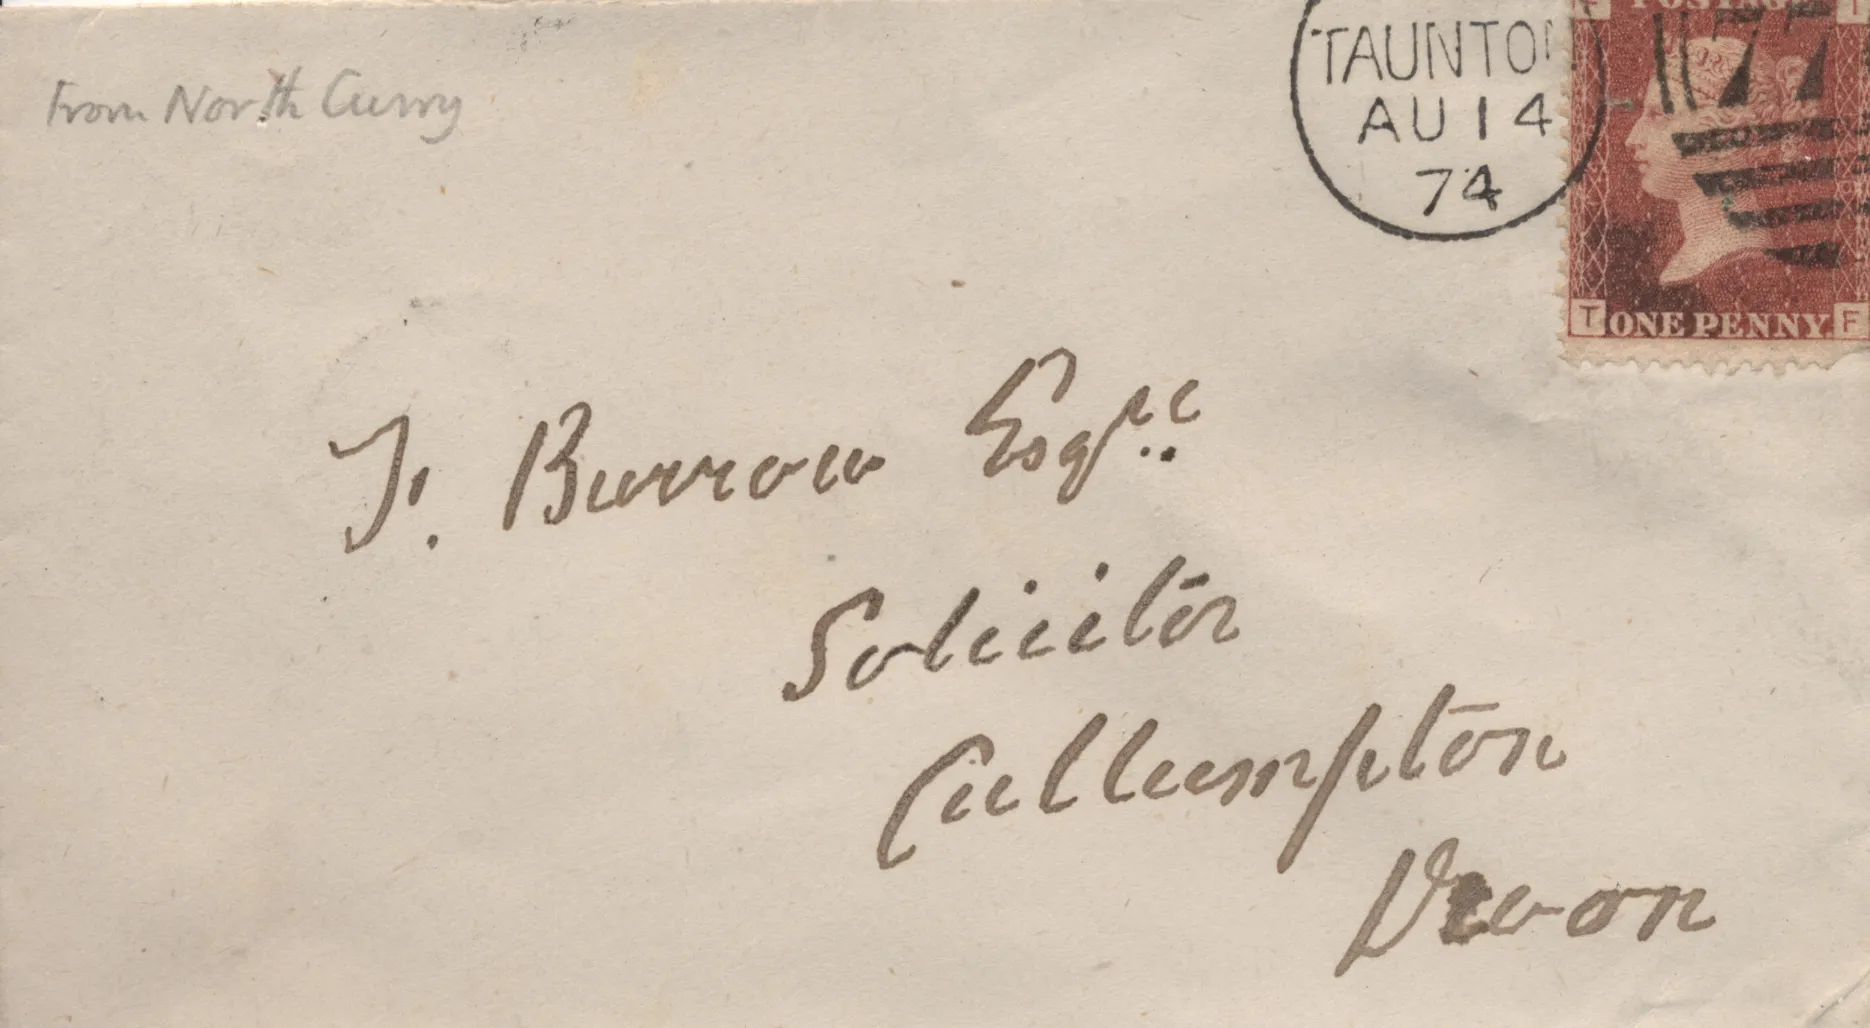 From North Curry
TAUNTON
AU 14
74
POSTAGE
77
T ONE PENNY. F
T. Burrow Esqre.
Solicitor
Cullumpton
Devon